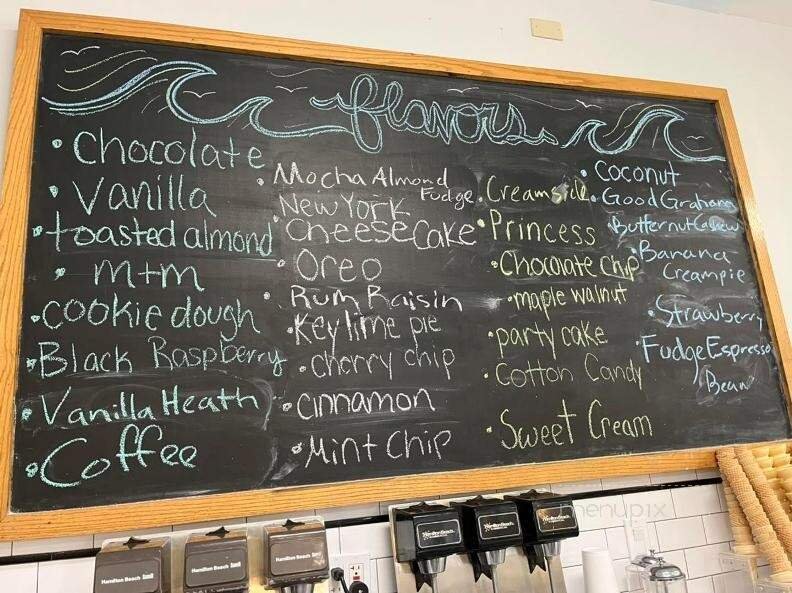 flavors
• Chocolate
• Vanilla
• toasted almond
• m+m
• cookie dough
• Black Raspberry
• Vanilla Heath
• Coffee
• Mocha Almond
Fudge
• New York
Cheese Cake
• Oreo
• Rum Raisin
• Key lime pie
• cherry chip
• cinnamon
• Mint Chip
• Creamsicle
• Princess
• Chocolate chip
• maple walnut
• party cake
• Cotton Candy
• Sweet Cream
• Coconut
• Good Grahams
• Butternut Cashew
• Banana
Creampie
• Strawberry
• Fudge Espresso
Bean
Hamilton Beach
Hamilton Beach
Hamilton Beach
Hamilton Beach
Hamilton Beach
Hamilton Beach
menupix